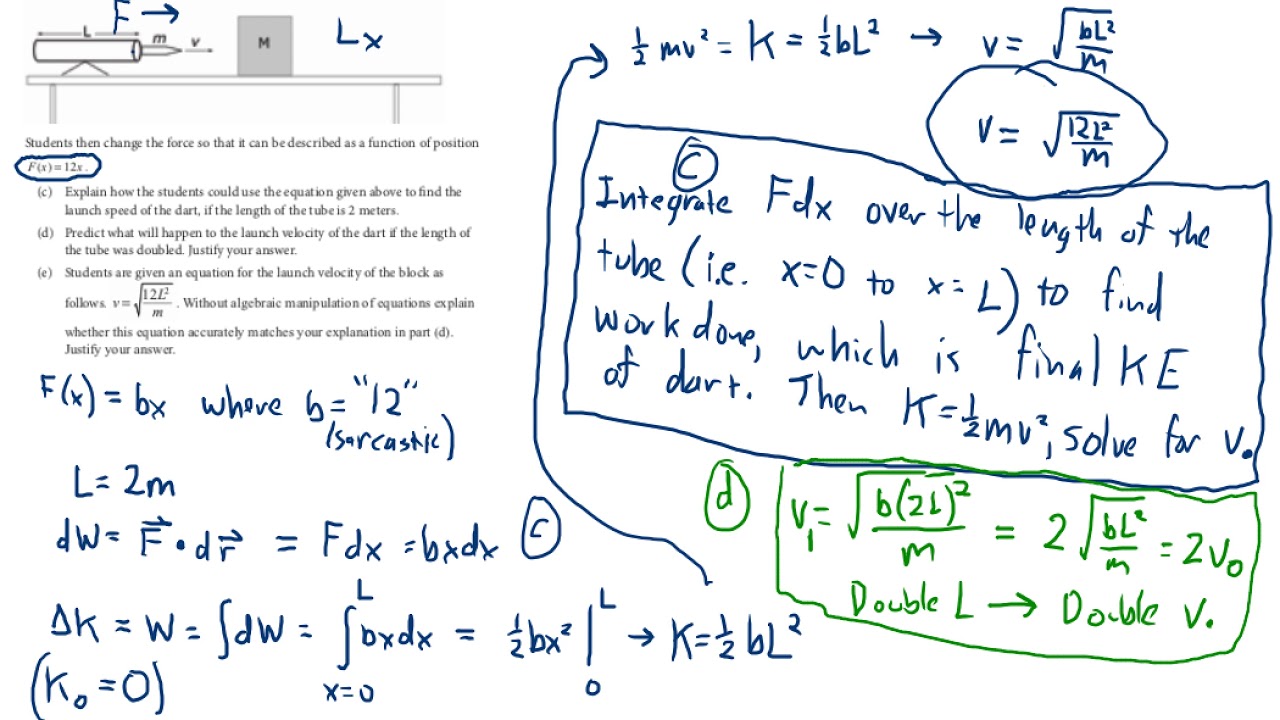 F →
L
m
v
M
Lx
Students then change the force so that it can be described as a function of position
F(x) = 12x.
(c) Explain how the students could use the equation given above to find the
launch speed of the dart, if the length of the tube is 2 meters.
(d) Predict what will happen to the launch velocity of the dart if the length of
the tube was doubled. Justify your answer.
(e) Students are given an equation for the launch velocity of the block as
follows, v = √(12L²/m). Without algebraic manipulation of equations explain
whether this equation accurately matches your explanation in part (d).
Justify your answer.
F(x) = bx where b = "12"
(sarcastic)
L = 2m
dW = F⃗ • dr⃗ = Fdx = bxdx
ΔK = W = ∫dW = ∫ₓ₌₀ᴸ bxdx = ½bx² |₀ᴸ → K = ½bL²
(K₀ = 0)
½mv² = K = ½bL² → v = √(bL²/m)
v = √(12L²/m)
(c)
Integrate Fdx over the length of the
tube (i.e. x=0 to x=L) to find
work done, which is final KE
of dart. Then K=½mv², solve for v.
(c)
(d)
v₁ = √(b(2L)²/m) = 2√(bL²/m) = 2v₀
Double L → Double v.